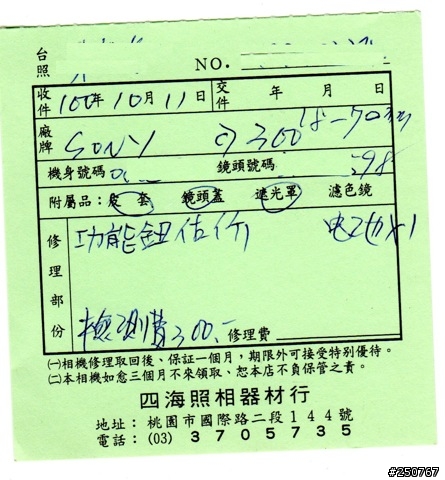 台照
NO.
收件 100年10月11日 交件 年 月 日
廠牌 SONY α300 18-70
機身號碼 鏡頭號碼 98
附屬品：皮套 鏡頭蓋 遮光罩 濾色鏡
修理部份 功能鈕估价 电池×1
檢測費300.- 修理費
㈠相機修理取回後、保証一個月，期限外可接受特別優待。
㈡本相機如愈三個月不來領取、恕本店不負保管之責。
四海照相器材行
地址：桃園市國際路二段144號
電話：(03) 3705735
#250767